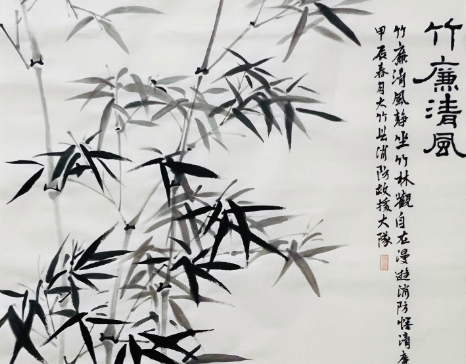 竹廉清風
竹廉清風靜坐竹林觀自在漫遊消防怪清
甲辰春月大竹县消防救援大隊